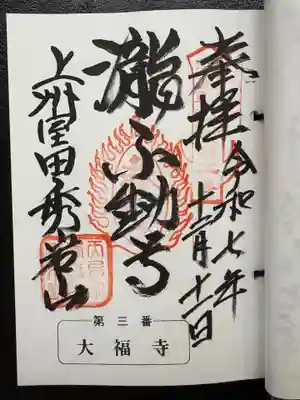 奉拝
令和七年
十二月十一日
瀧不動尊
上州室田秀岩山
第三番
大福寺